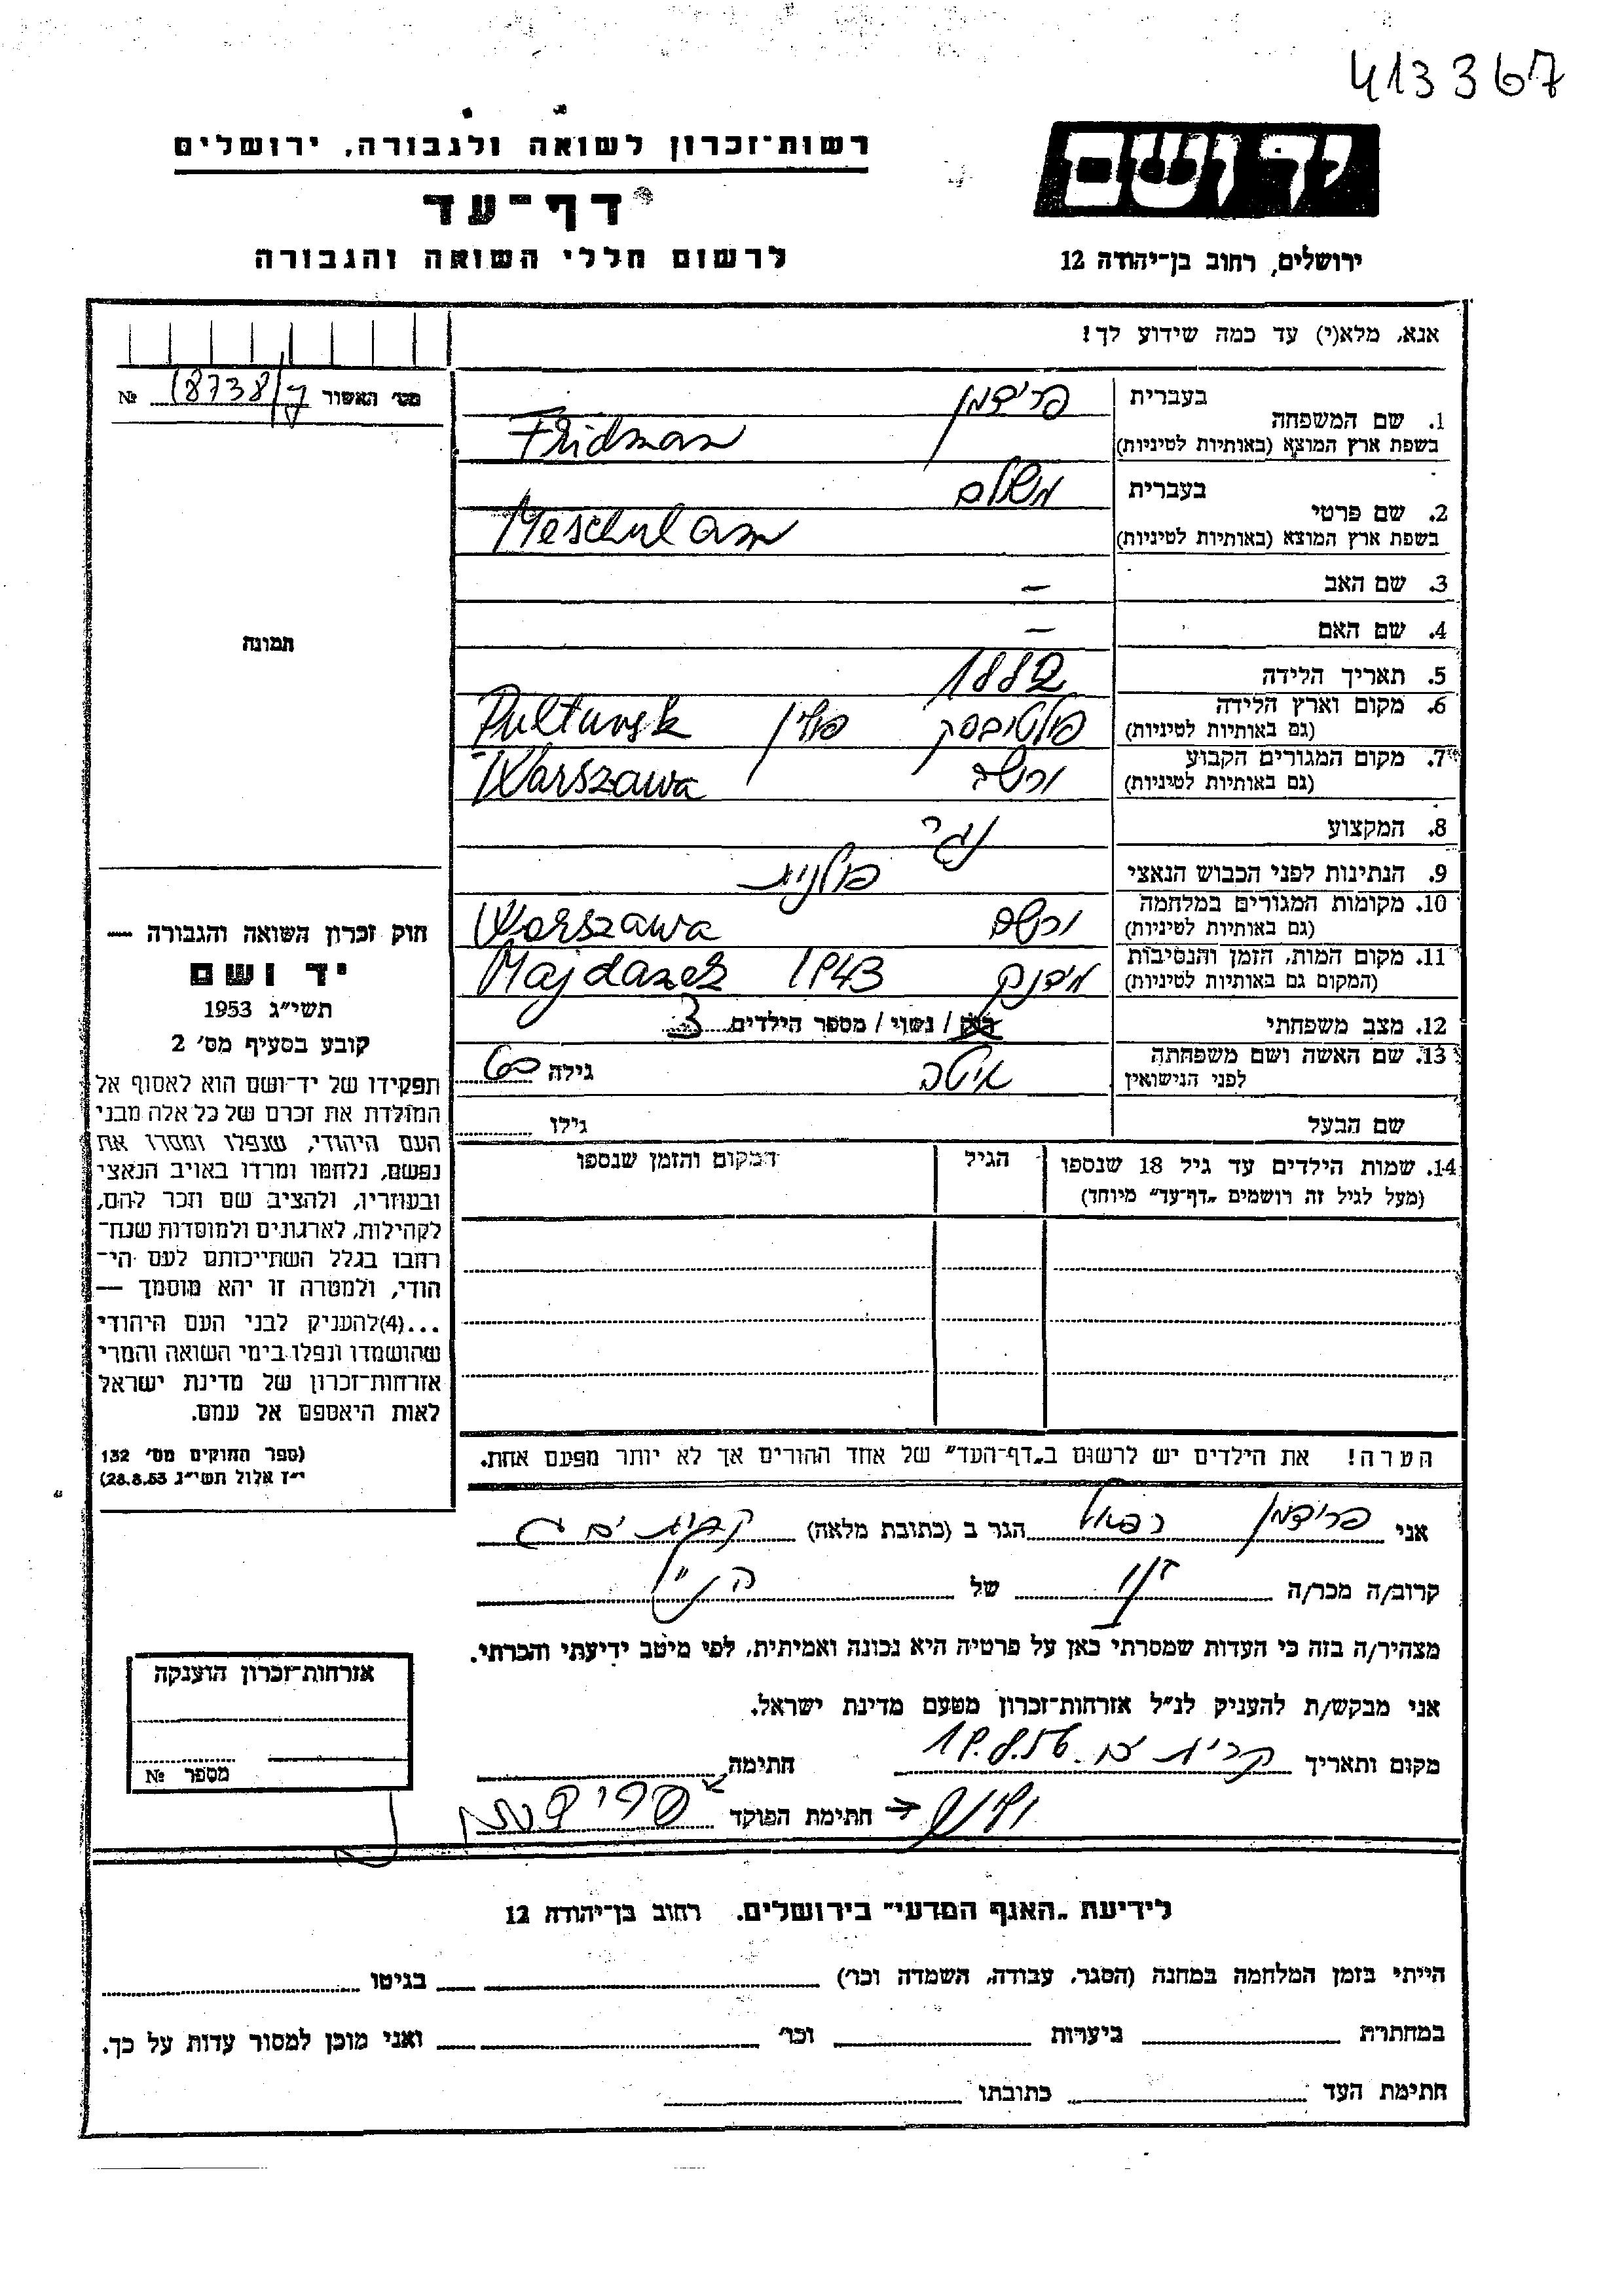 413367
רשות־זכרון לשואה ולגבורה, ירושלים
דף־עד
לרשום חללי השואה והגבורה
יד ושם
ירושלים, רחוב בן־יהודה 12
אנא, מלא(י) עד כמה שידוע לך!
מס׳ האשור 18738/ № 
1. שם המשפחה בעברית פרידמן
בשפת ארץ המוצא (באותיות לטיניות) Fridman
2. שם פרטי בעברית משולם
בשפת ארץ המוצא (באותיות לטיניות) Meschulam
3. שם האב —
4. שם האם —
5. תאריך הלידה 1882
6. מקום וארץ הלידה (גם באותיות לטיניות) פולטוסק פולין Pultusk
7. מקום המגורים הקבוע (גם באותיות לטיניות) ורשה Warszawa
8. המקצוע נגר
9. הנתינות לפני הכבוש הנאצי פולנית
10. מקומות המגורים במלחמה (גם באותיות לטיניות) ורשה Warszawa
11. מקום המות, הזמן והנסיבות (המקום גם באותיות לטיניות) מידנק 1943 Majdanek
12. מצב משפחתי רוק / נשוי / מספר הילדים 3
13. שם האשה ושם משפחתה לפני הנישואין איטה גילה 60
שם הבעל גילו
14. שמות הילדים עד גיל 18 שנספו הגיל המקום והזמן שנספו
(מעל לגיל זה רושמים „דף־עד״ מיוחד)
הערה! את הילדים יש לרשום ב„דף־העד״ של אחד ההורים אך לא יותר מפעם אחת.
תמונה
חוק זכרון השואה והגבורה —
יד ושם
תשי״ג 1953
קובע בסעיף מס׳ 2
תפקידו של יד־ושם הוא לאסוף אל
המולדת את זכרם של כל אלה מבני
העם היהודי, שנפלו ומסרו את
נפשם, נלחמו ומרדו באויב הנאצי
ובעוזריו, ולהציב שם וזכר להם,
לקהילות, לארגונים ולמוסדות שנח־
רבו בגלל השתייכותם לעם הי־
הודי, ולמטרה זו יהא מוסמך —
...(4)להעניק לבני העם היהודי
שהושמדו ונפלו בימי השואה והמרי
אזרחות־זכרון של מדינת ישראל
לאות היאספם אל עמם.
(ספר החוקים מס׳ 132
י״ז אלול תשי״ג 28.8.53)
אני פרידמן רפאל הגר ב (כתובת מלאה) קרית ים ג
קרוב/ה מכר/ה של הנ״ל
מצהיר/ה בזה כי העדות שמסרתי כאן על פרטיה היא נכונה ואמיתית, לפי מיטב ידיעתי והכרתי.
אני מבקש/ת להעניק לנ״ל אזרחות־זכרון מטעם מדינת ישראל.
מקום ותאריך קרית ים 19.8.56 חתימה
חתימת הפוקד פרידמן
אזרחות־זכרון הוענקה
מספר №
לידיעת „האגף המדעי״ בירושלים. רחוב בן־יהודה 12
הייתי בזמן המלחמה במחנה (הסגר, עבודה, השמדה וכו׳) בגיטו
במחתרת ביערות וכו׳ ואני מוכן למסור עדות על כך.
חתימת העד כתובתו